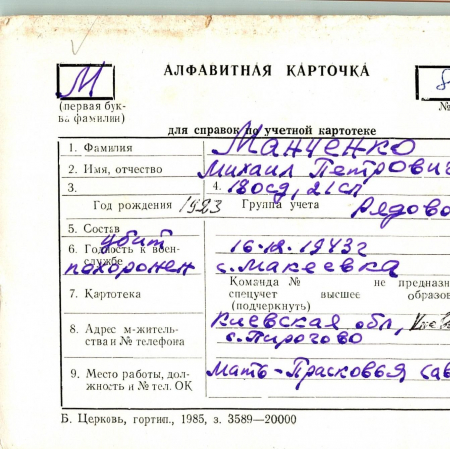 АЛФАВИТНАЯ КАРТОЧКА
М
8
(первая бук-
ва фамилии)
№
для справок по учетной картотеке
1. Фамилия Манченко
2. Имя, отчество Михаил Петрович
3. 4. 180сд, 21сп
Год рождения 1923 Группа учета Рядово
5. Состав
убит
6. Годность к воен- 16.12.1943г
службе
похоронен с. Макеевка
Команда № не предназн
7. Картотека спецучет высшее образов
(подчеркнуть)
8. Адрес м-житель- Киевская обл,
ства и № телефона с. Пирогово
9. Место работы, дол- мать - Прасковья Сав
жность и № тел. ОК
Б. Церковь, гортип., 1985, з. 3589—20000